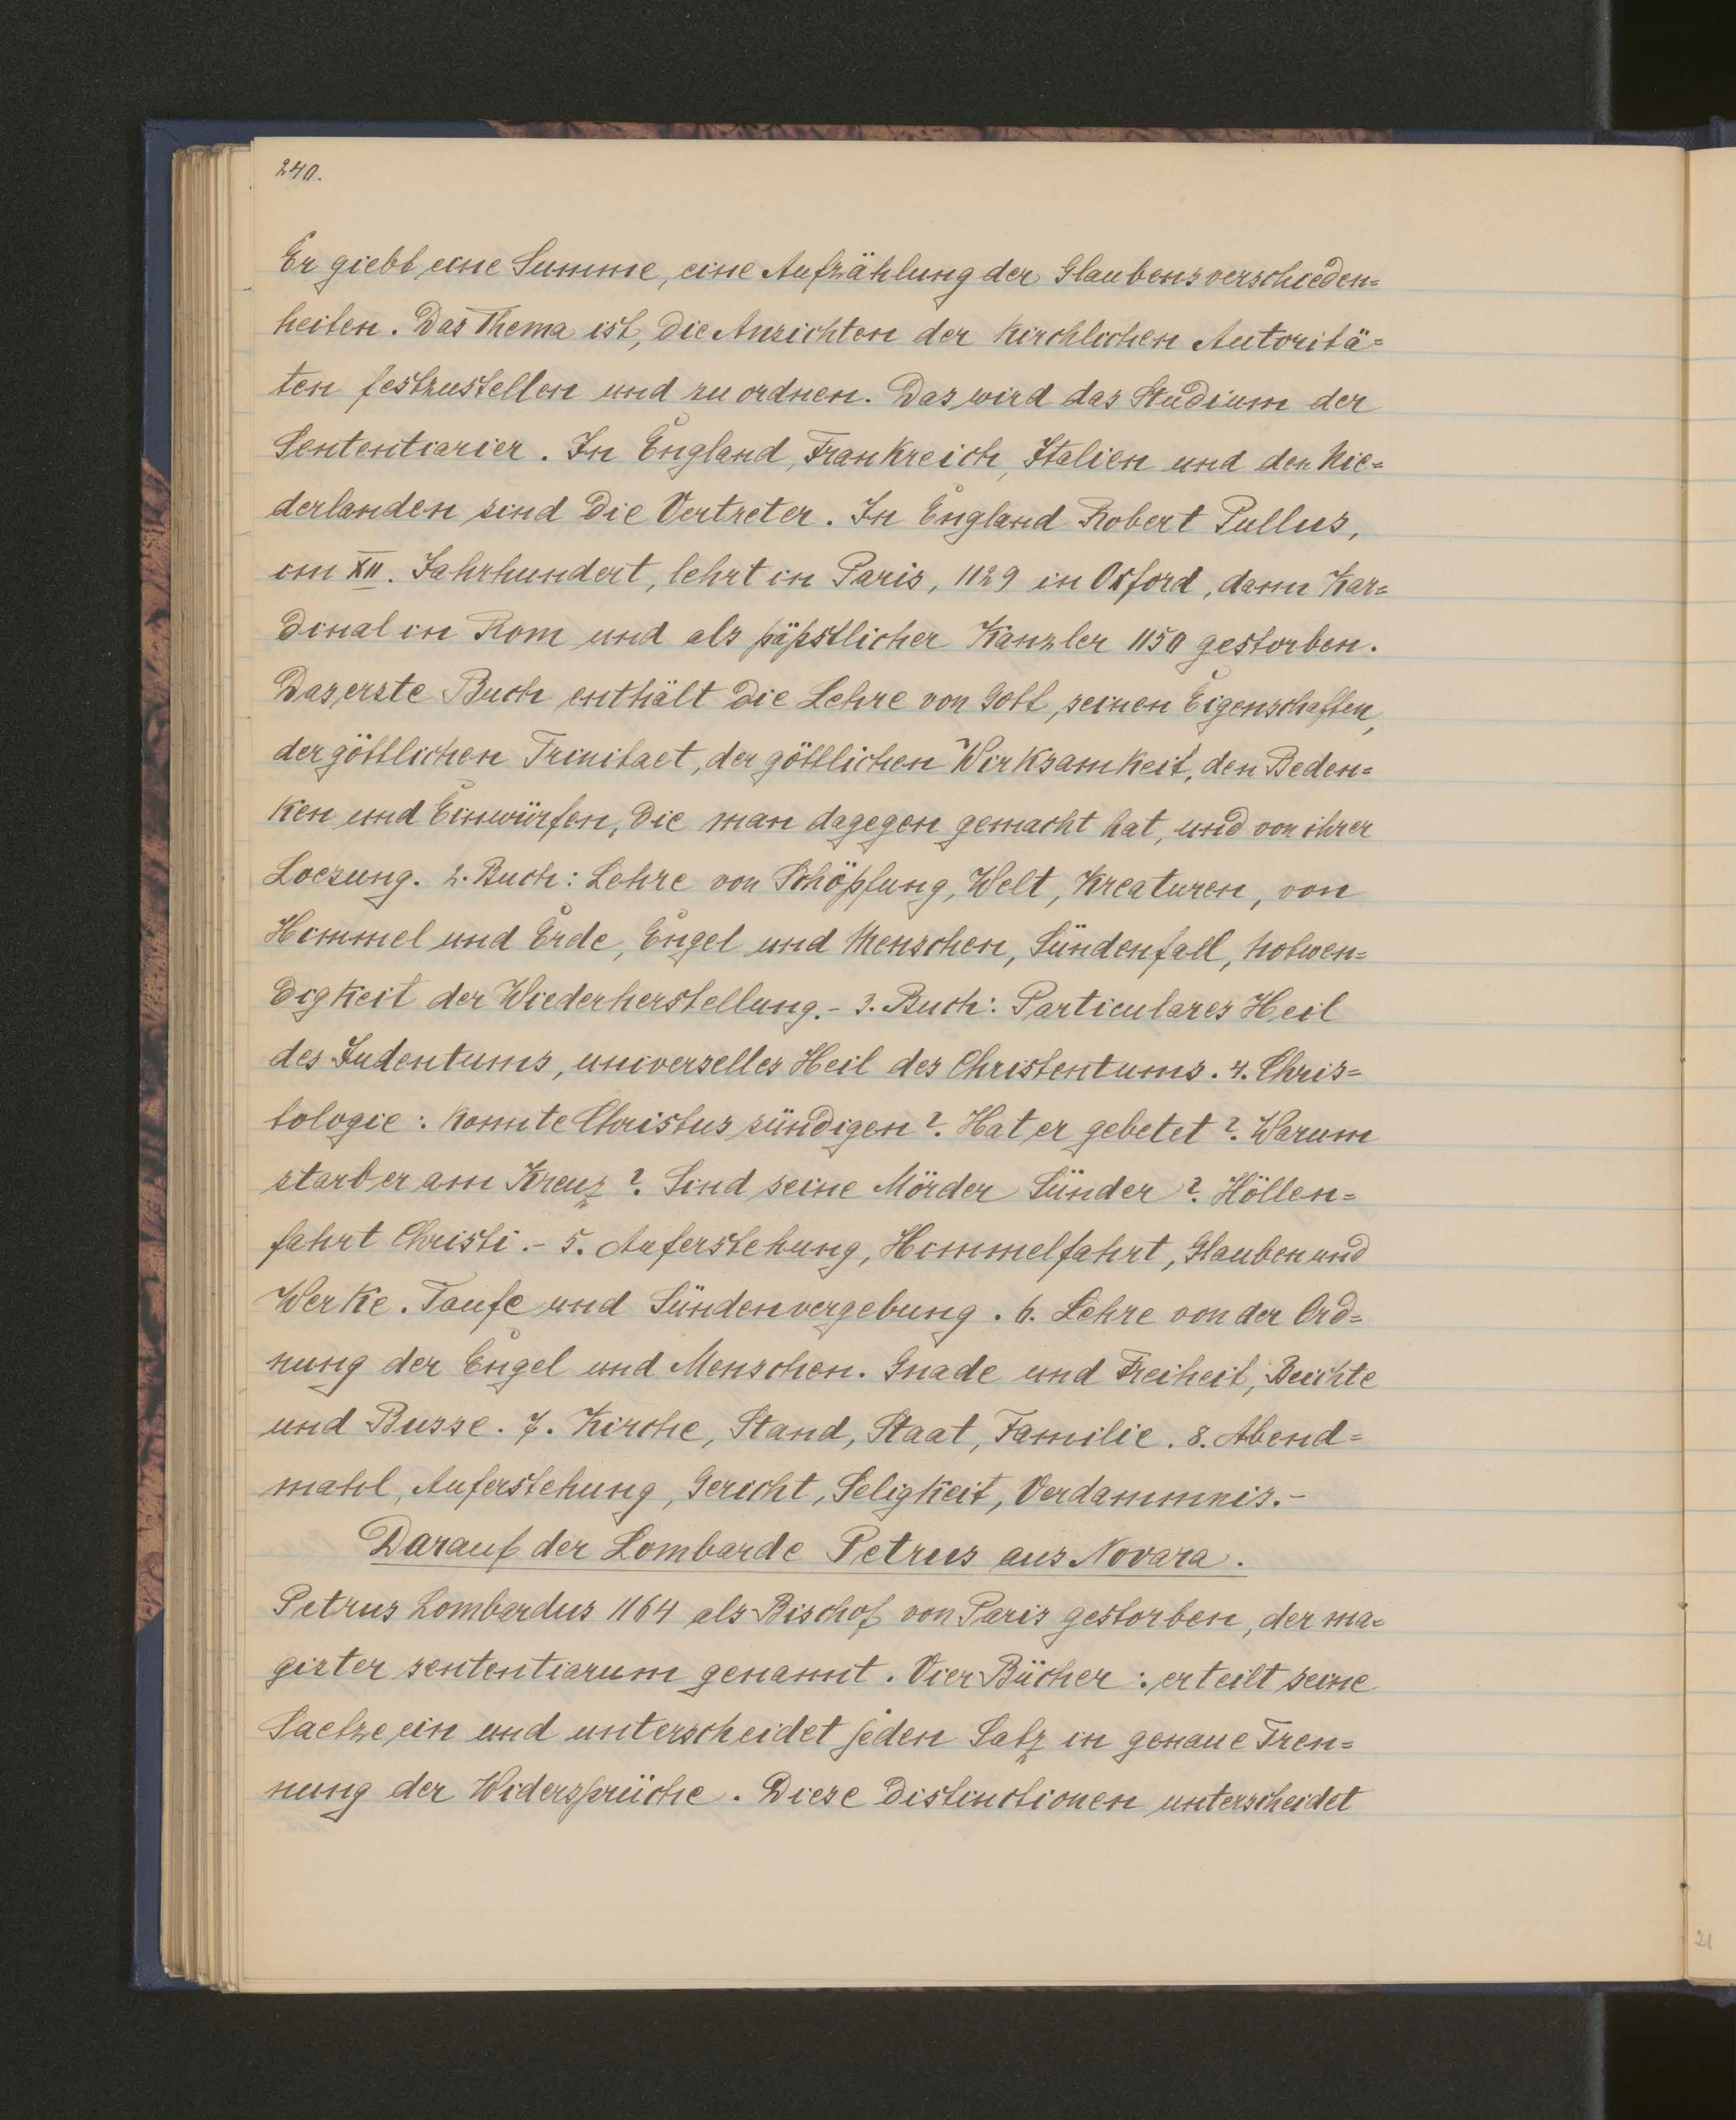 240.
Er giebt eine Summe, eine Aufzählung der Glaubensverschieden=
heiten. Das Thema ist, die Ansichten der kirchlichen Autoritä=
ten festzustellen und zu ordnen. Das wird das Studium der
Sententiarier. In England, Frankreich, Italien und den Nie=
derlanden sind die Vertreter. In England Robert Pullus,
im XII. Jahrhundert, lehrt in Paris, 1129 in Oxford, dann Kar=
dinal in Rom und als päpstlicher Kanzler 1150 gestorben.
Das erste Buch enthält die Lehre von Gott, seinen Eigenschaften,
der göttlichen Trinitaet, der göttlichen Wirksamkeit, den Beden=
ken und Einwürfen, die man dagegen gemacht hat, und von ihrer
Loesung. 2. Buch: Lehre von Schöpfung, Welt, Kreaturen, von
Himmel und Erde, Engel und Menschen, Sündenfall, Notwen=
digkeit der Wiederherstellung.- 3. Buch: Particulares Heil
des Judentums, universelles Heil des Christentums. 4. Chris=
tologie: Konnte Christus sündigen?. Hat er gebetet?. Warum
starb er am Kreuz?. Sind seine Mörder Sünder?. Höllen=
fahrt Christi.- 5. Auferstehung, Himmelfahrt, Glauben und
Werke. Taufe und Sündenvergebung. 6. Lehre von der Ord=
nung der Engel und Menschen. Gnade und Freiheit, Beichte
und Busse. 7. Kirche, Stand, Staat, Familie. 8. Abend=
mahl, Auferstehung, Gericht, Seligkeit, Verdammnis.-
Darauf der Lombarde Petrus aus Novara.
Petrus Lombardus 1164 als Bischof von Paris gestorben, der ma=
gister sententiarum genannt. Vier Bücher: er teilt seine
Saetze ein und unterscheidet jeden Satz in genaue Tren=
nung der Widersprüche. Diese Distinctionen unterscheidet
21